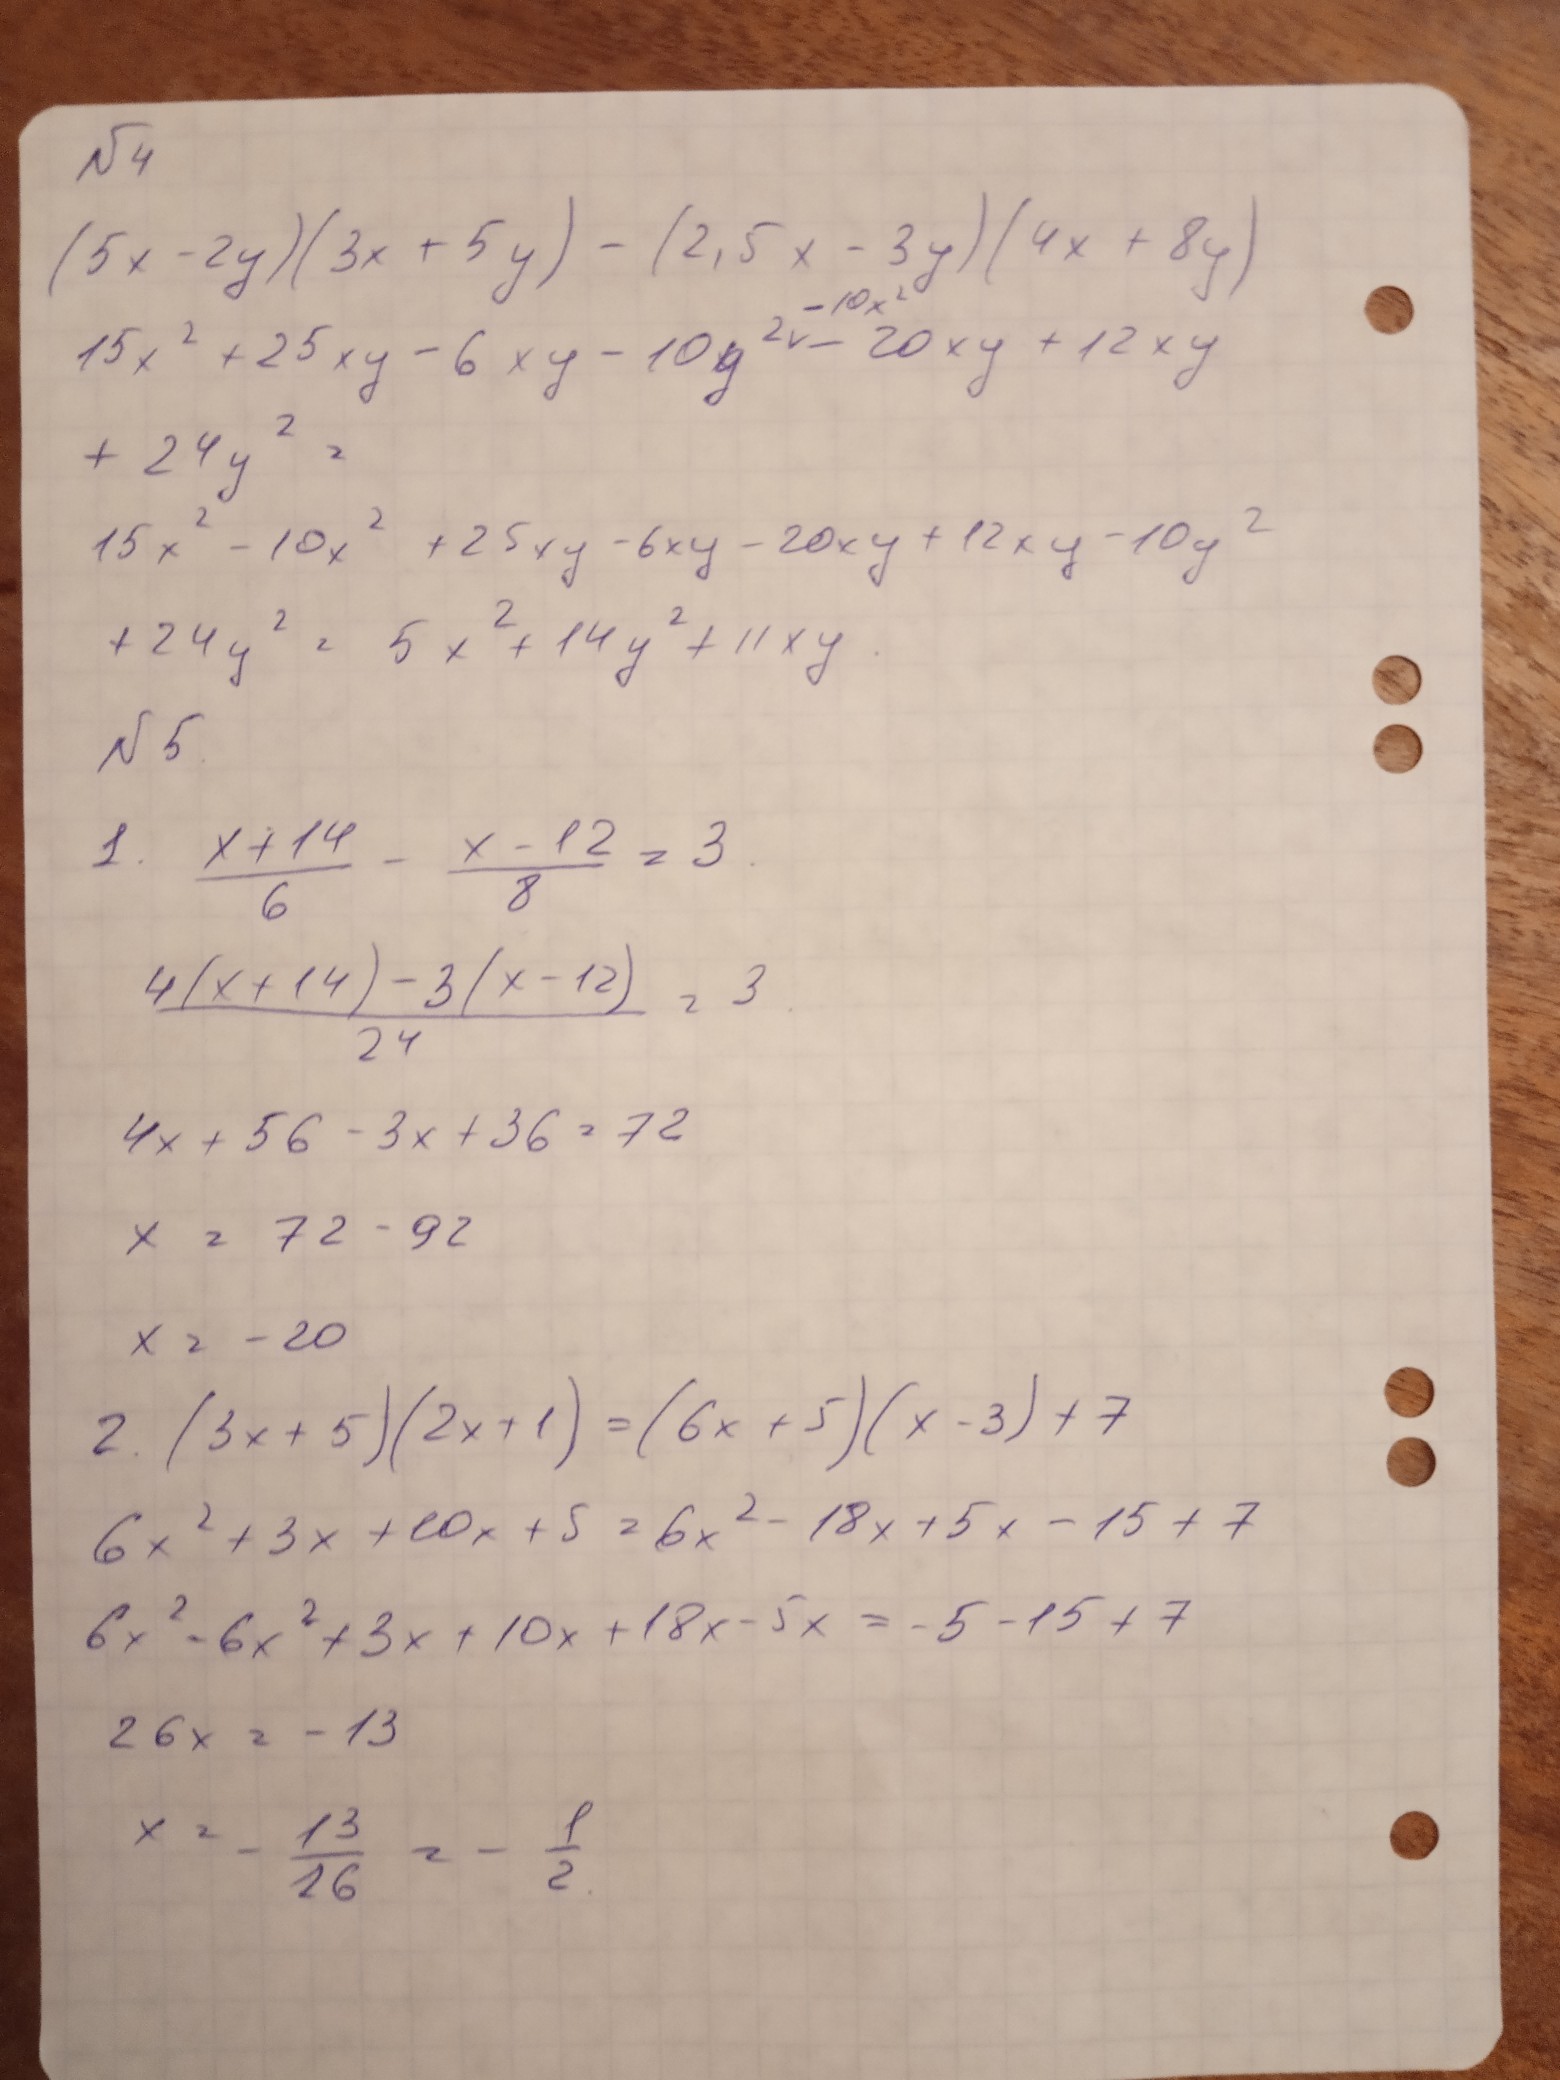 №4
(5x - 2y)(3x + 5y) - (2,5x - 3y)(4x + 8y)
-10x²
15x² + 25xy - 6xy - 10y² - 20xy + 12xy
+ 24y² =
15x² - 10x² + 25xy - 6xy - 20xy + 12xy - 10y²
+ 24y² = 5x² + 14y² + 11xy.
№5.
1. \frac{x + 14}{6} - \frac{x - 12}{8} = 3.
\frac{4(x + 14) - 3(x - 12)}{24} = 3.
4x + 56 - 3x + 36 = 72
x = 72 - 92
x = -20
2. (3x + 5)(2x + 1) = (6x + 5)(x - 3) + 7
6x² + 3x + 10x + 5 = 6x² - 18x + 5x - 15 + 7
6x² - 6x² + 3x + 10x + 18x - 5x = -5 - 15 + 7
26x = -13
x = -\frac{13}{26} = -\frac{1}{2}.